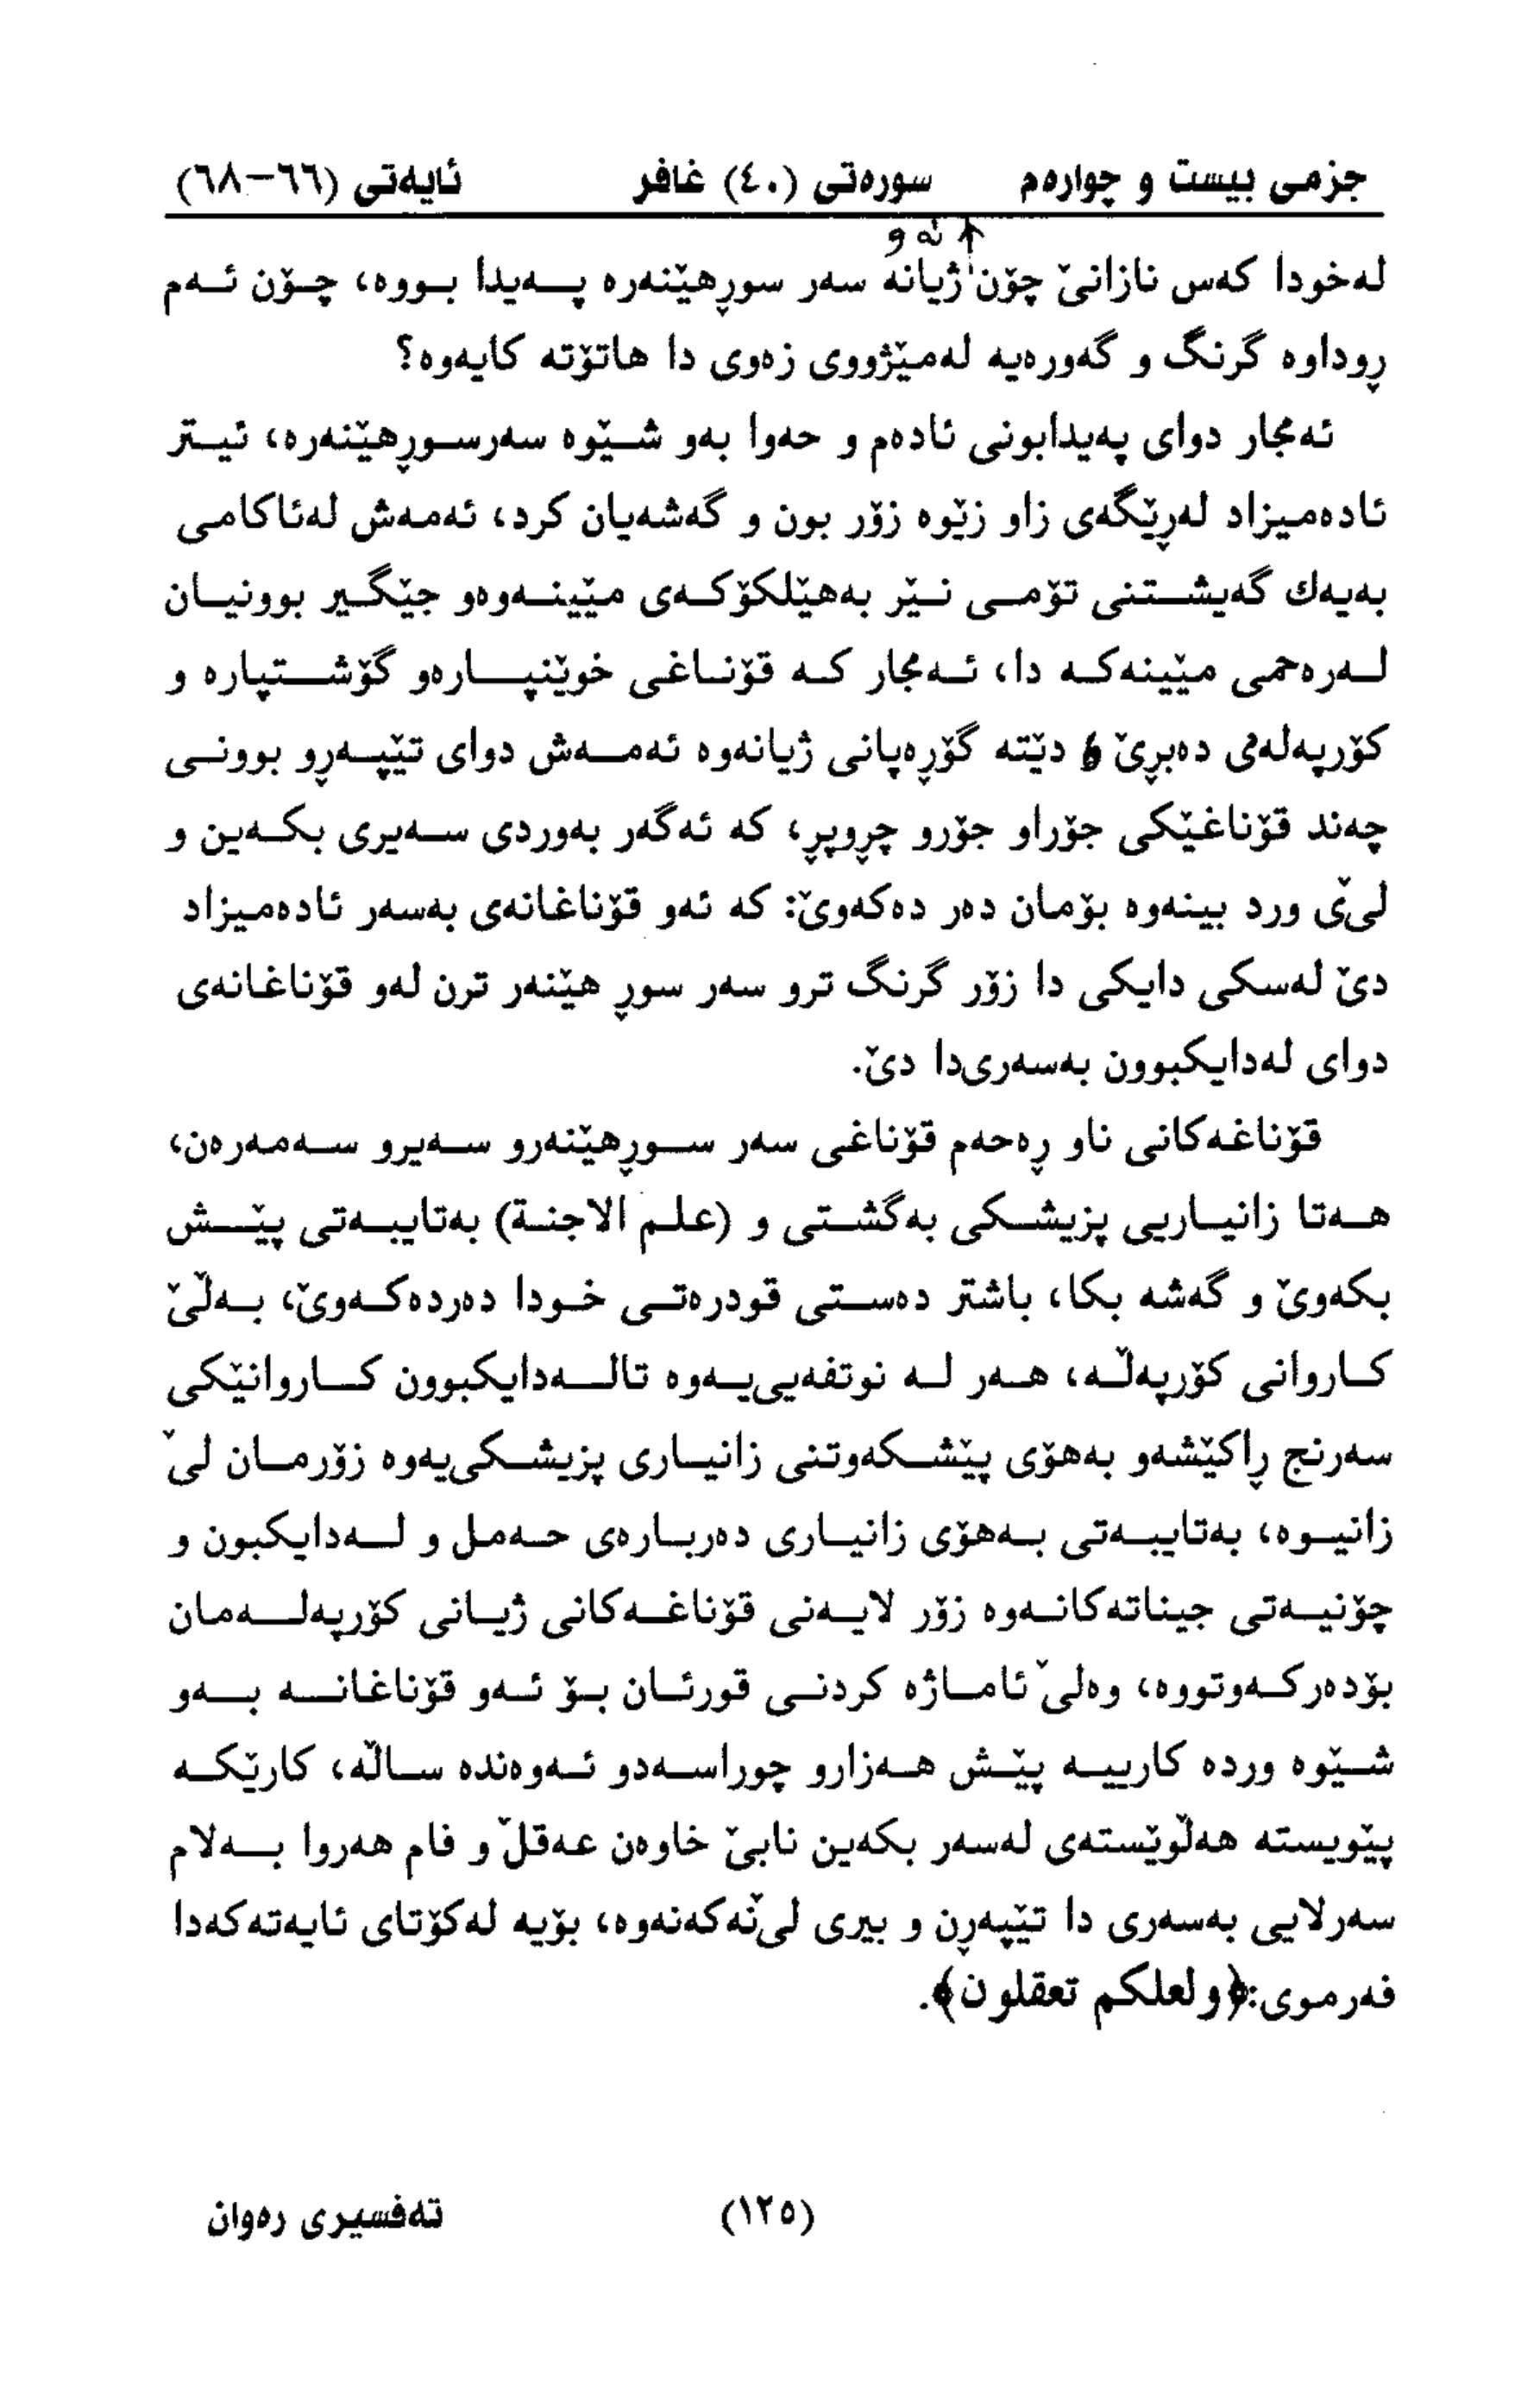 جزمی بیست و چوارەم سورەتی (٤٠) غافر ئایەتی (٦٦-٦٨)
ئە و
لەخودا کەس نازانێ چۆن ژیانە سەر سوڕهێنەرە پــەیدا بــووە، چــۆن ئــەم
ڕوداوە گرنگ و گەورەیە لەمێژووی زەوی دا هاتۆتە کایەوە؟
ئەمجار دوای پەیدابونی ئادەم و حەوا بەو شــێوە سەرســوڕهێنەرە، ئیــتر
ئادەمیزاد لەڕێگەی زاو زێوە زۆر بون و گەشەیان کرد، ئەمەش لەئاکامی
بەیەك گەیشــتنی تۆمــی نــێر بەهێلکۆکــەی مێینــەوەو جێگــیر بوونیــان
لــەرەحمی مێینەکــە دا، ئــەمجار کــە قۆنــاغی خوێنپــارەو گۆشــتپارە و
کۆرپەلەی دەبڕێ و دێتە گۆڕەپانی ژیانەوە ئەمــەش دوای تێپــەڕو بوونــی
چەند قۆناغێکی جۆراو جۆرو چڕوپڕ، کە ئەگەر بەوردی ســەیری بکــەین و
لێی ورد بینەوە بۆمان دەر دەکەوێ: کە ئەو قۆناغانەی بەسەر ئادەمیزاد
دێ لەسکی دایکی دا زۆر گرنگ ترو سەر سوڕ هێنەر ترن لەو قۆناغانەی
دوای لەدایکبوون بەسەری‌دا دێ.
قۆناغەکانی ناو ڕەحەم قۆناغی سەر ســوڕهێنەرو ســەیرو ســەمەرەن،
هــەتا زانیــاریی پزیشــکی بەگشــتی و (علــم الاجنــة) بەتایبــەتی پێــش
بکەوێ و گەشە بکا، باشتر دەســتی قودرەتــی خــودا دەردەکــەوێ، بــەڵێ
کــاروانی کۆرپەڵــە، هــەر لــە نوتفەیی‌یــەوە تالــەدایکبوون کــاروانێکی
سەرنج ڕاکێشەو بەهۆی پێشــکەوتنی زانیــاری پزیشــکی‌یەوە زۆرمــان لێ
زانیــوە، بەتایبــەتی بــەهۆی زانیــاری دەربــارەی حــەمل و لــەدایکبون و
چۆنیــەتی جیناتەکانــەوە زۆر لایــەنی قۆناغــەکانی ژیــانی کۆرپەلــەمان
بۆدەرکــەوتووە، وەلێ ئامــاژە کردنــی قورئــان بــۆ ئــەو قۆناغانــە بــەو
شــێوە وردە کارییــە پێــش هــەزارو چوراســەدو ئــەوەندە ســاڵە، کارێکــە
پێویستە هەڵوێستەی لەسەر بکەین نابێ خاوەن عەقڵ و فام هەروا بــەلام
سەرلایی بەسەری دا تێپەڕن و بیری لێ‌نەکەنەوە، بۆیە لەکۆتای ئایەتەکەدا
فەرموی:﴿ولعلكم تعقلون﴾.
(١٢٥) تەفسیری رەوان